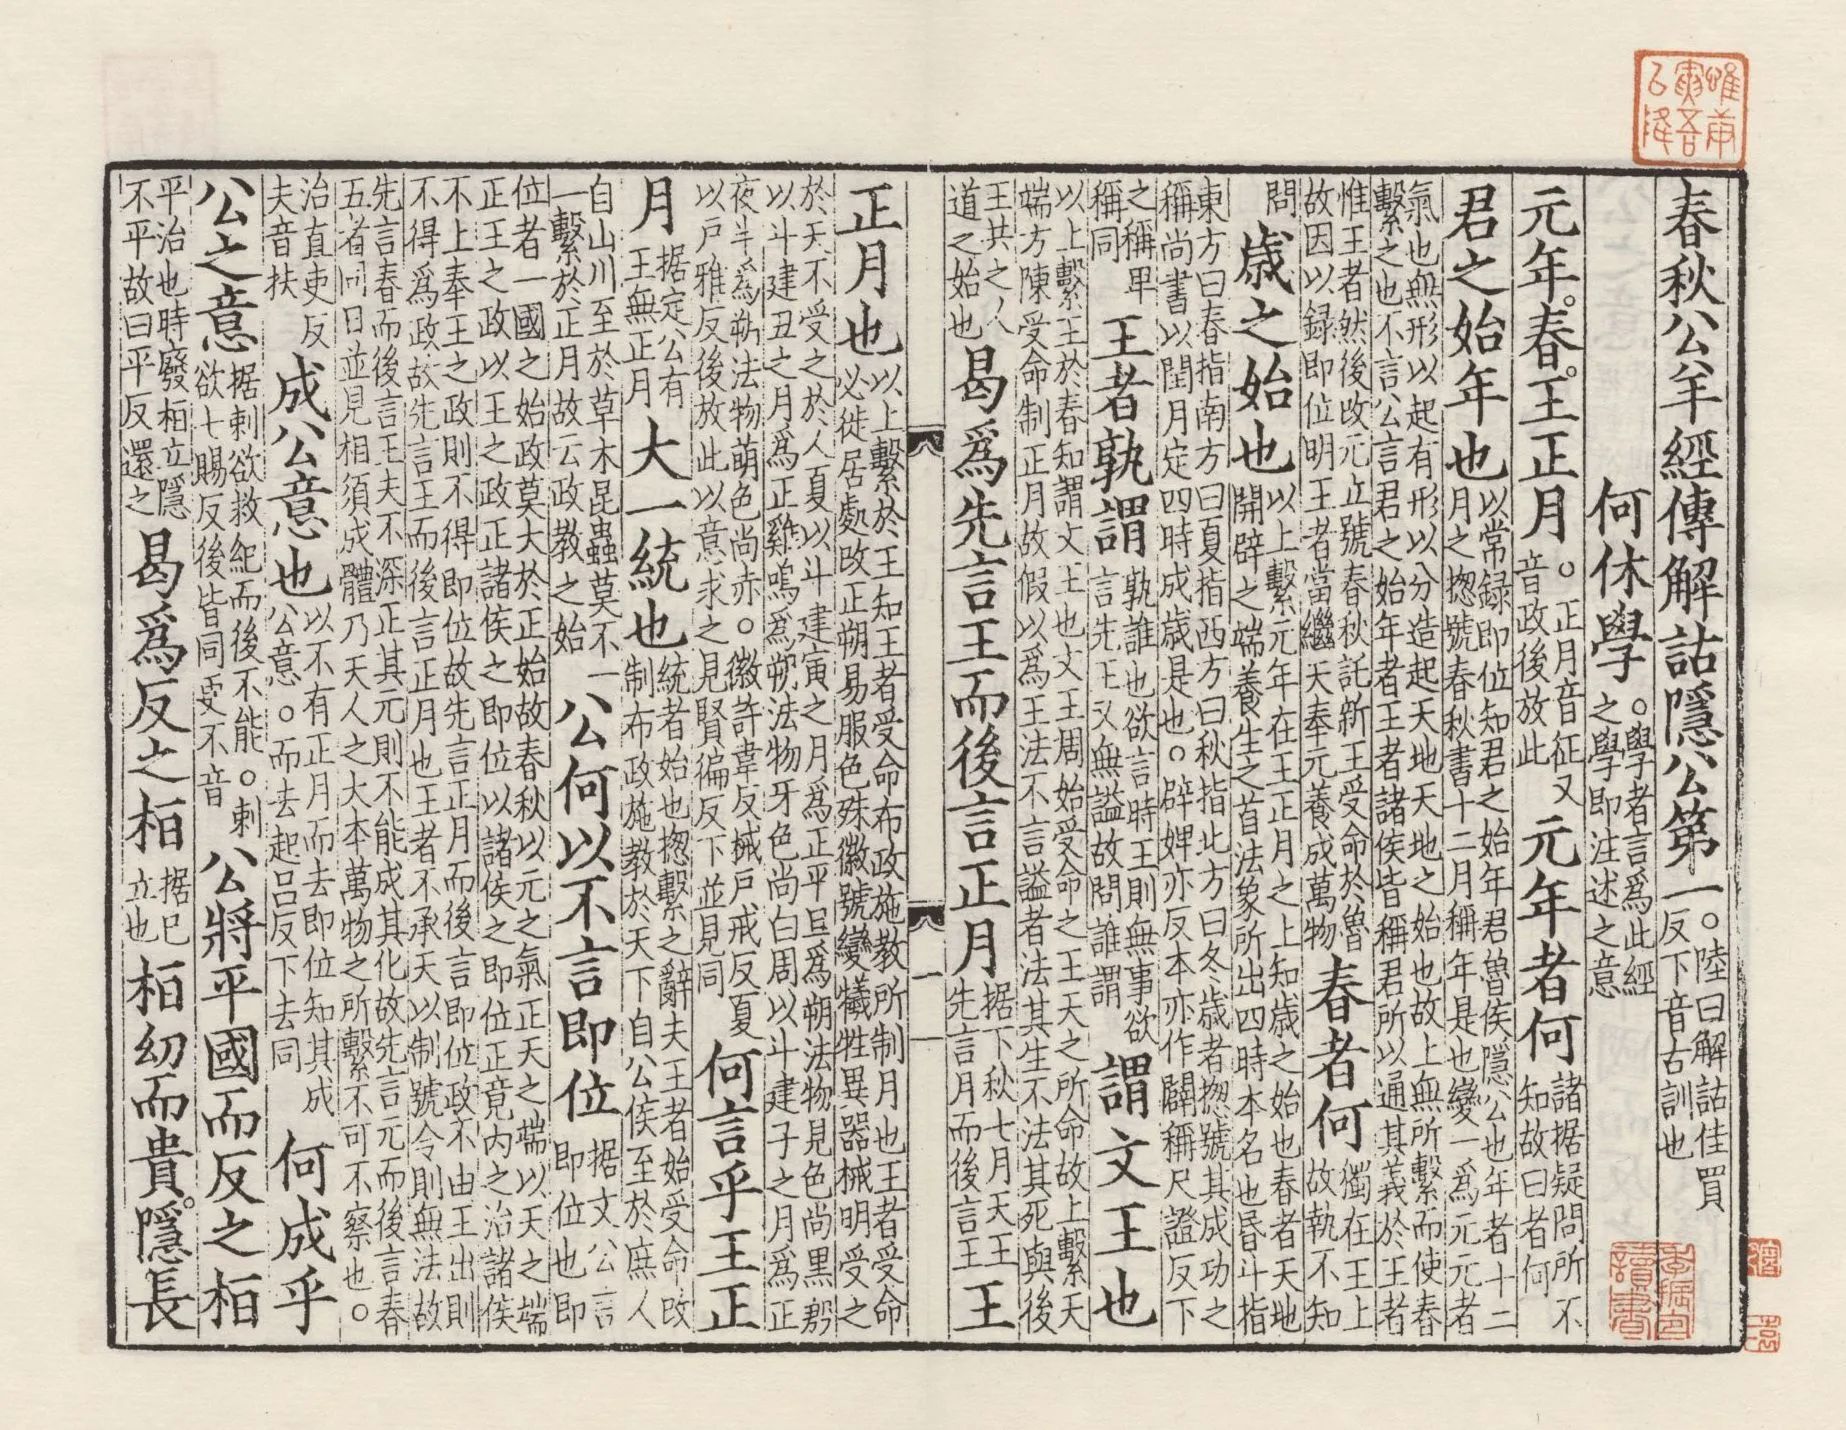 春秋公羊經傳解詁隱公第一。陸曰解詁佳買反下音古訓也
何休學。學者言爲此經之學即注述之意
元年。春。王正月。正月音征又音政後放此元年者何諸据疑問所不知故曰者何
君之始年也以常録即位知君之始年君魯侯隱公也年者十二月之揔號春秋書十二月稱年是也變一爲元元者
氣也無形以起有形以分造起天地天地之始也故上無所繫而使春繫之也不言公言君之始年者王者諸侯皆稱君所以通其義於王者
惟王者然後改元立號春秋託新王受命於魯故因以録即位明王者當繼天奉元養成萬物春者何獨在王上故執不知
問歲之始也以上繫元年在王正月之上知歲之始也春者天地開辟之端養生之首法象所出四時本名也昏斗指
東方曰春指南方曰夏指西方曰秋指北方曰冬歲者揔號其成功之稱尚書以閏月定四時成歲是也。辟婢亦反本亦作闢稱尺證反下
之稱單稱同王者孰謂孰誰也欲言時王則無事欲言先王又無謚故問誰謂謂文王也
以上繫王於春知謂文王也文王周始受命之王天之所命故上繫天端方陳受命制正月故假以爲王法不言謚者法其生不法其死與後
王共之人道之始也曷爲先言王而後言正月据下秋七月天王先言月而後言王王
一
正月也以上繫於王知王者受命布政施教所制月也王者受命必徙居處改正朔易服色殊徽號變犧牲異器械明受之
於天不受之於人夏以斗建寅之月爲正平旦爲朔法物見色尚黑殷以斗建丑之月爲正雞鳴爲朔法物牙色尚白周以斗建子之月爲正
夜半爲朔法物萌色尚赤。徽許韋反械戶戒反夏以戶雅反後放此以意求之見賢徧反下並見同何言乎王正
月据定公有王無正月大一統也統者始也揔繫之辭夫王者始受命改制布政施教於天下自公侯至於庶人
自山川至於草木昆蟲莫不一一繫於正月故云政教之始公何以不言即位据文公言即位也即
位者一國之始政莫大於正始故春秋以元之氣正天之端以天之端正王之政以王之政正諸侯之即位以諸侯之即位正竟內之治諸侯
不上奉王之政則不得即位故先言正月而後言即位政不由王出則不得爲政故先言王而後言正月也王者不承天以制號令則無法故
先言春而後言王夫不深正其元則不能成其化故先言元而後言春五者同日並見相須成體乃天人之大本萬物之所繫不可不察也。
治直吏反夫音扶成公意也以不有正月而去即位知其成公意。而去起呂反下去同何成乎
公之意据剌欲救紀而後不能。剌欲七賜反後皆同更不音公將平國而反之桓
平治也時廢桓立隱不平故曰平反還之曷爲反之桓据已立也桓幼而貴。隱長
季振宜讀書